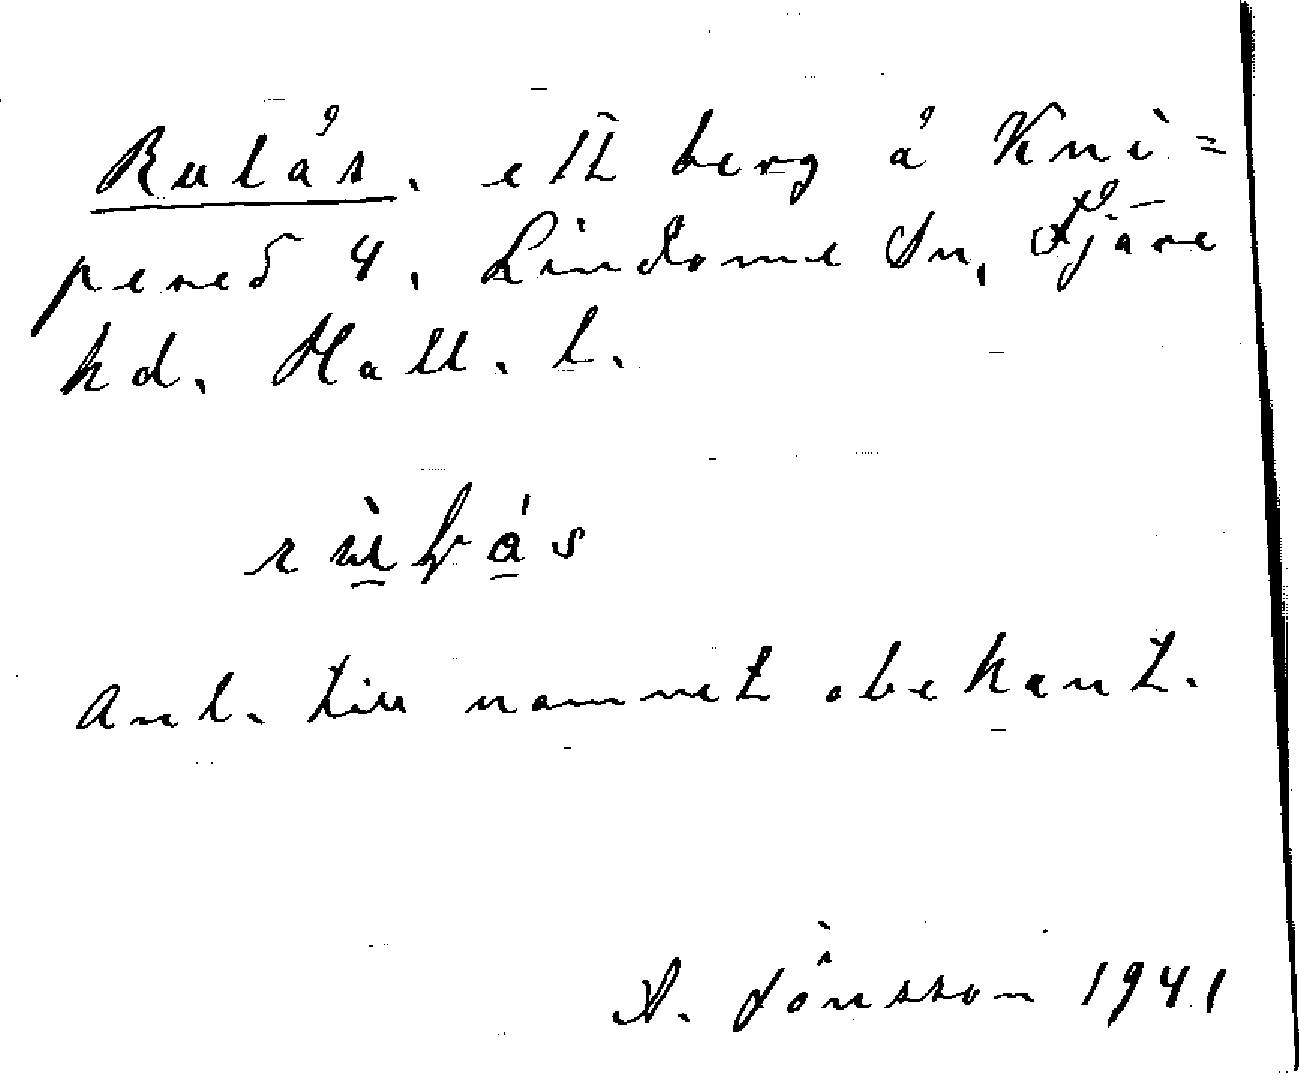 Rulås. ett berg å Kni=
pered 4. Lindome Sn, Fjäre
hd. Hall. l.
Anl. till namnet obekant.
A. Jönsson 1941